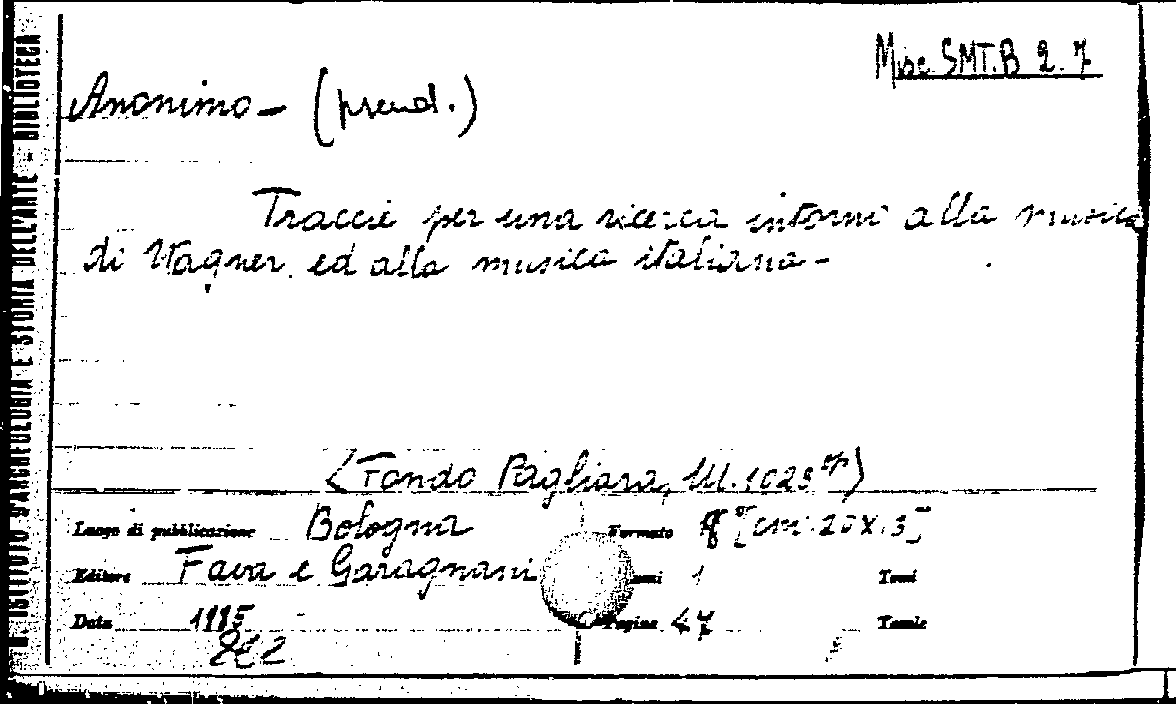 Misc. SMT.B 2. 7
Anonimo - (pseud.)
Traccie per una ricerca intorno alla musica
di Wagner ed alla musica italiana -
ISTITUTO D'ARCHEOLOGIA E STORIA DELL'ARTE - BIBLIOTECA
(Fondo Pagliara, M. 1025
Luogo di pubblicazione Bologna Formato 8° [cm. 20x13]
Editore Fava e Garagnani 1 Tomi
Data 1885 Pagine 47 Tavole